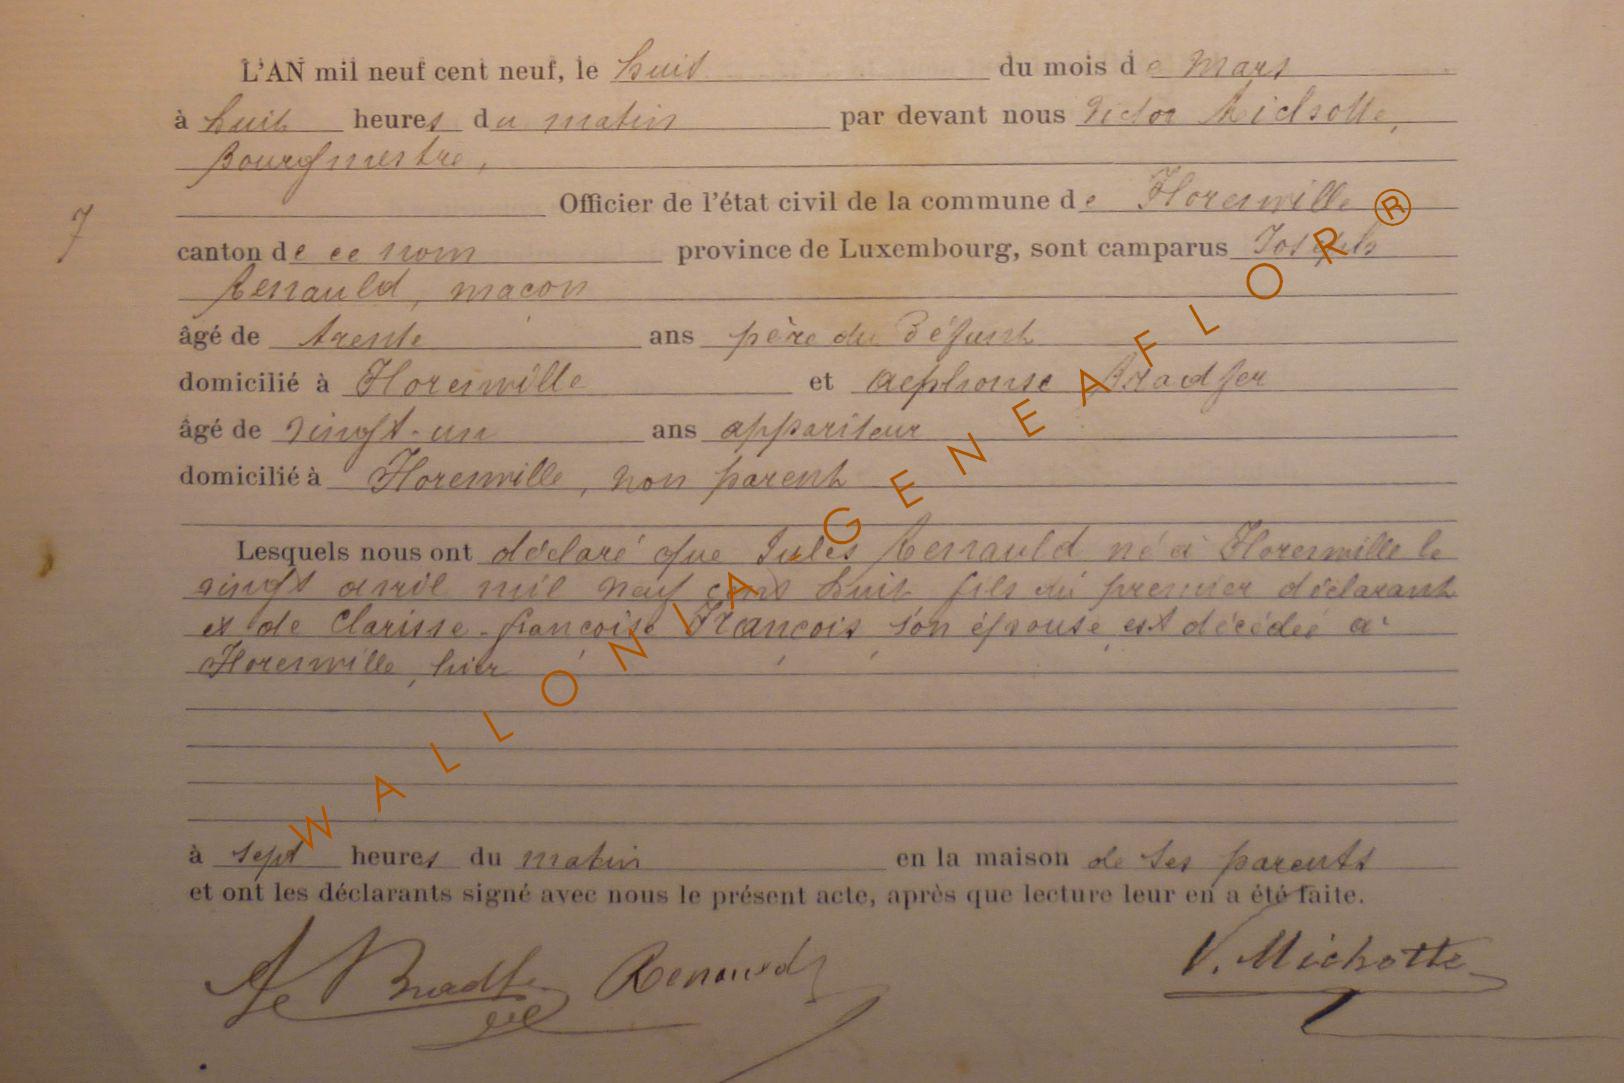 L'AN mil neuf cent neuf, le huit du mois de Mars
à huit heures du matin par devant nous Victor Michotte,
Bourgmestre,
Officier de l'état civil de la commune de Florenville
7
canton de ce nom province de Luxembourg, sont camparus Joseph
Renauld, maçon
âgé de trente ans père du défunt
domicilié à Florenville et Alphonse
âgé de vingt-un ans appariteur
domicilié à Florenville, non parent
Lesquels nous ont déclaré que Jules Renauld né à Florenville le
vingt avril mil neuf cent huit fils du premier déclarant
et de Clarisse-françoise François son épouse est décédé à
Florenville, hier
à sept heures du matin en la maison de ses parents
et ont les déclarants signé avec nous le présent acte, après que lecture leur en a été faite.
Renauld V. Michotte
WALLONIA-GENEAFLOR®